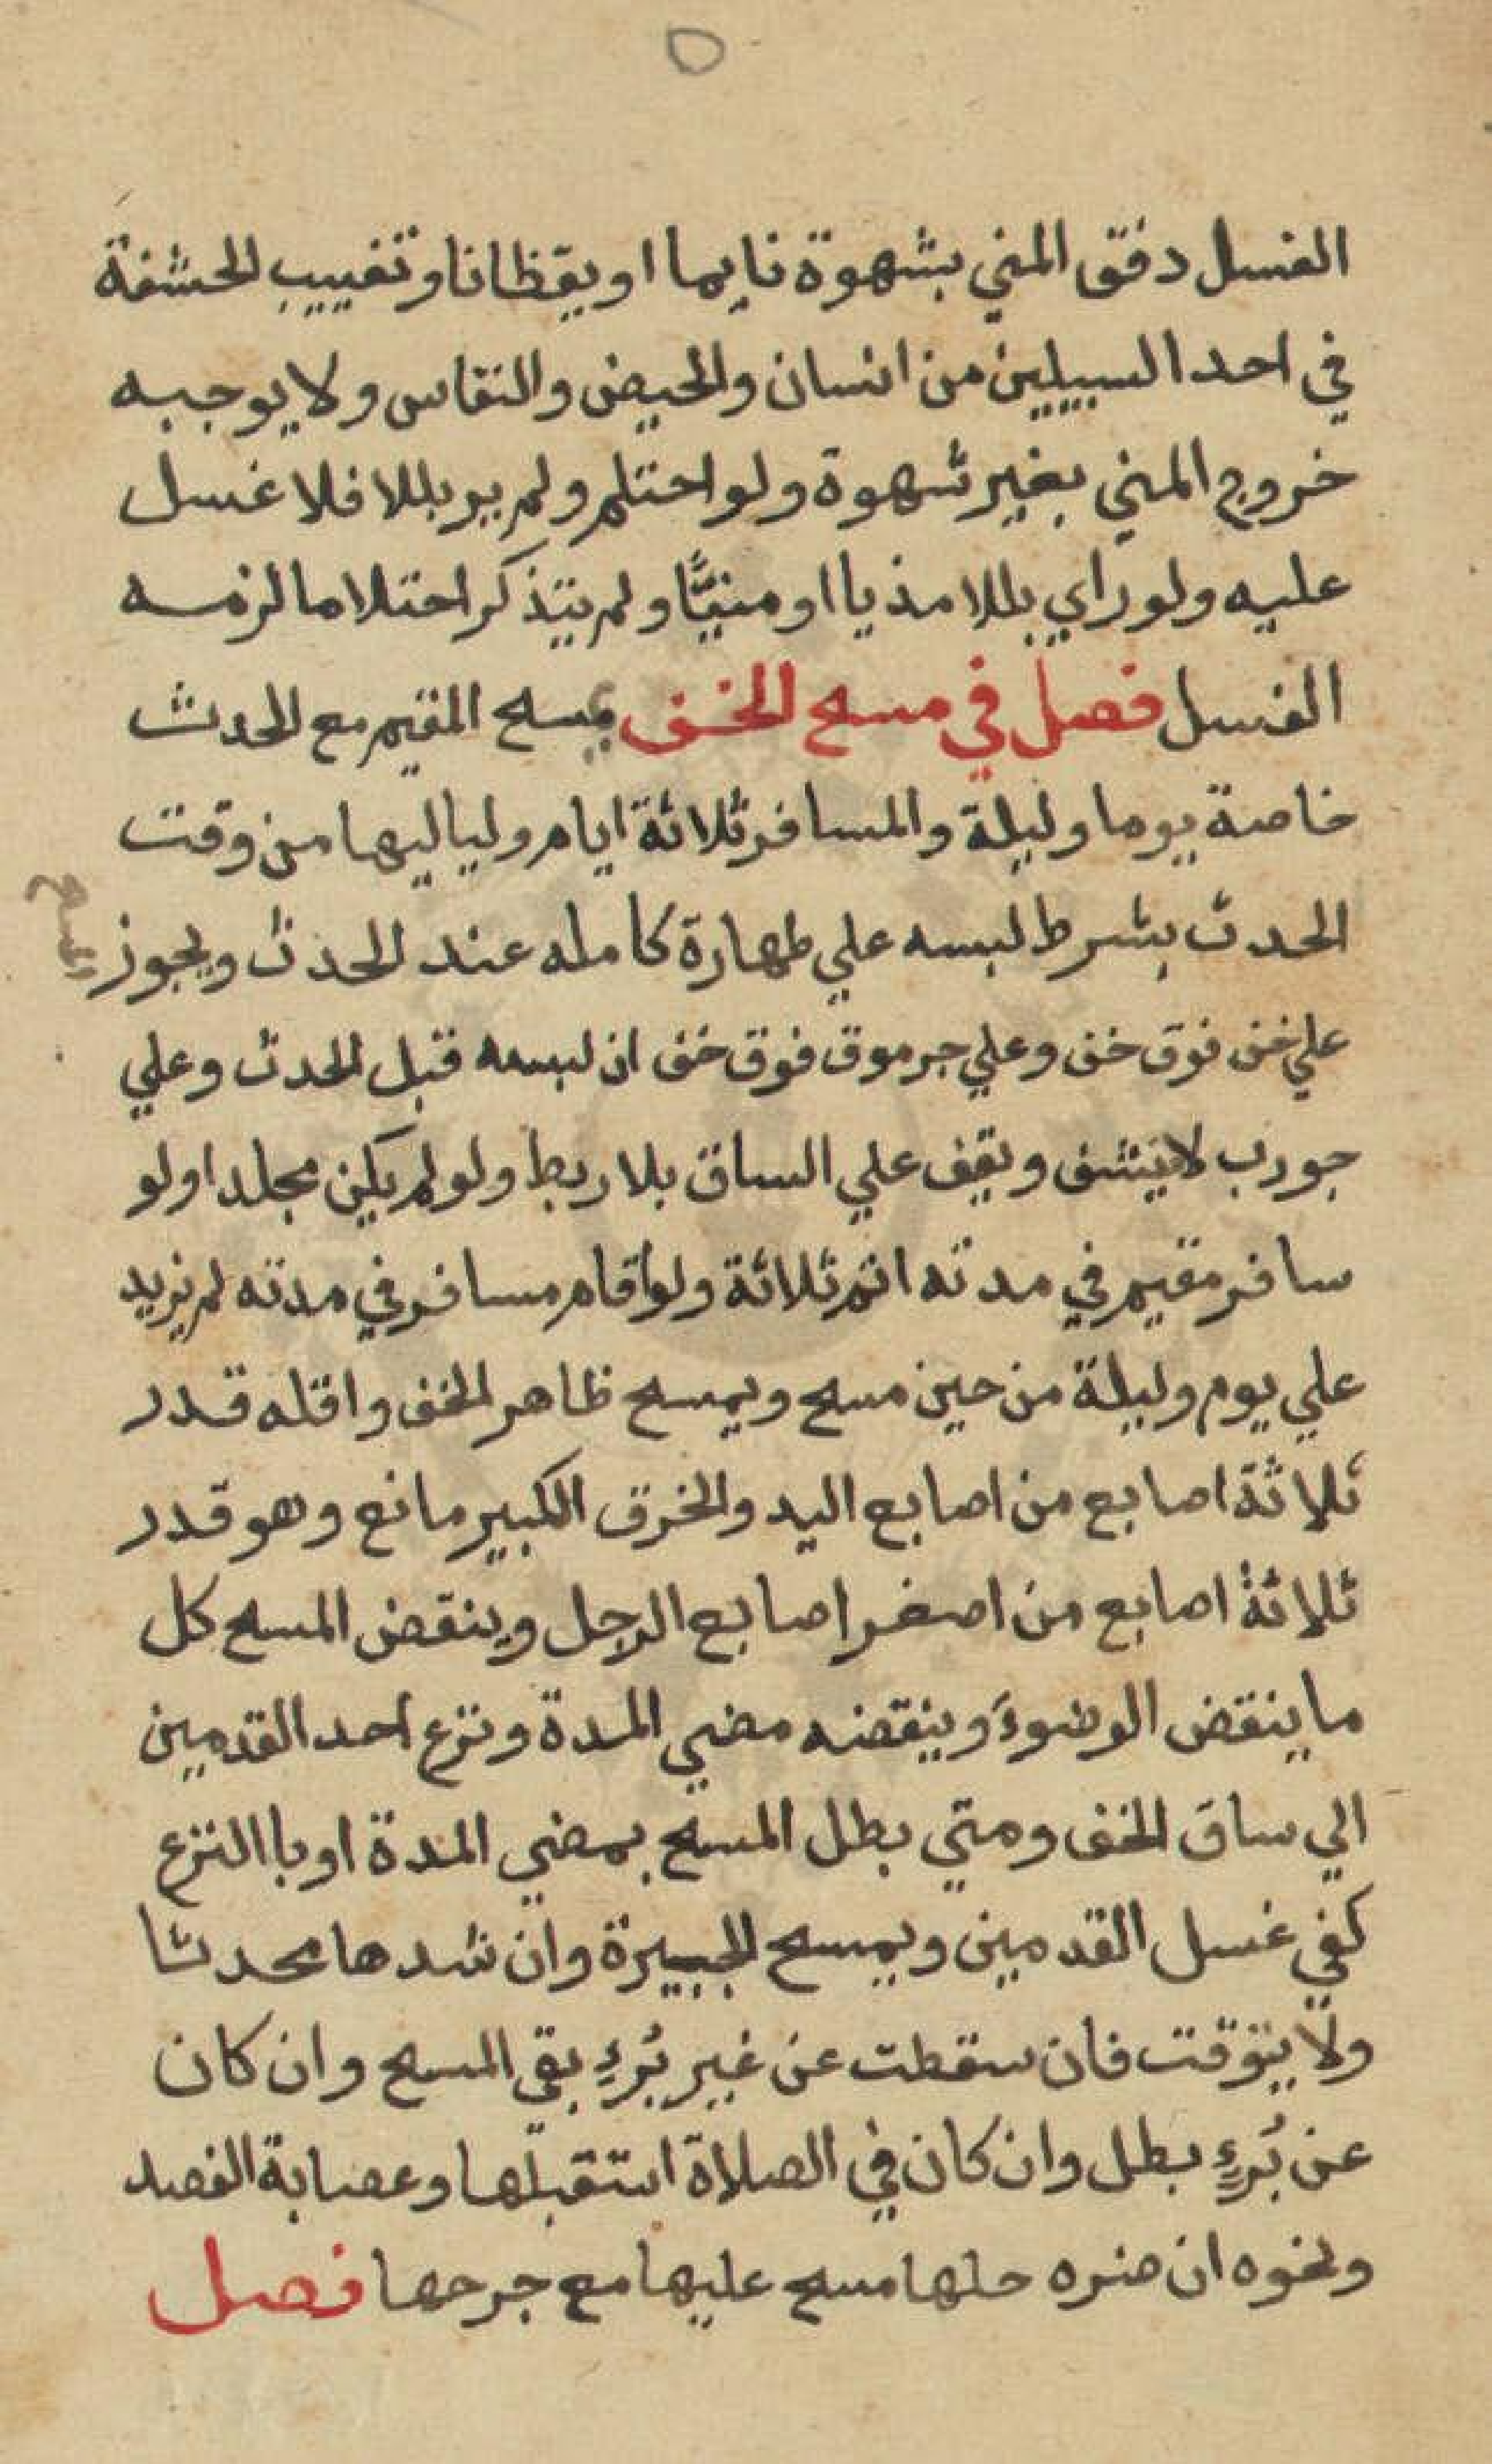 ٥
الغسل دفق المني بشهوة نايما او يقظانا وتغييب الحشفة
في احد السبيلين من انسان والحيض والنفاس ولا يوجبه
خروج المني بغير شهوة ولو احتلم ولم ير بللا فلا غسل
عليه ولو راي بللا مذيا او منيًّا ولم يتذكر احتلاما لزمه
الغسل فصل في مسح الخف يمسح المقيم مع الحدث
خاصة يوما وليلة والمسافر ثلاثة ايام ولياليها من وقت
الحدث بشرط لبسه علي طهارة كامله عند الحدث ويجوز
المسح
علي خف فوق خف وعلي جرموق فوق خف ان لبسه قبل الحدث وعلي
جورب لا ينشف ويقف علي الساق بلا ربط ولو لم يكن مجلدا ولو
سافر مقيم في مدته اتم ثلاثة ولو اقام مسافر في مدته لم يزيد
علي يوم وليلة من حين مسح ويمسح ظاهر الخف واقله قدر
ثلاثة اصابع من اصابع اليد والخرق الكبير مانع وهو قدر
ثلاثة اصابع من اصغر اصابع الرجل وينقض المسح كل
ما ينقض الوضوءَ وينقضه مضي المدة ونزع احد القدمين
الي ساق الخف ومتي بطل المسح بمضي المدة او باالنزع
كفي غسل القدمين ويمسح الجبيرة وان شدها محدثا
ولا يتوقت فان سقطت عن غير بُرءٍ بقي المسح وان كان
عن بُرءٍ بطل وان كان في الصلاة استقبلها وعصابة الفصد
ونحوه ان ضره حلها مسح عليها مع جرحها فصل